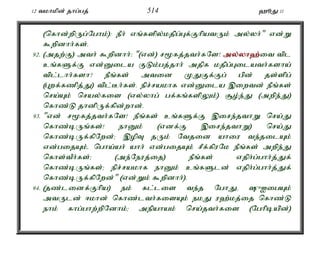 12 வமாமின் தாப்பத் 514 ஹூது 11
(கொன்றிருப்போம்) நீர் எங்களில்மதிப்புக்குரியவரும் அல்லர்" என்று
கூறினார்கள்.
92. (அதற்கு) அவர் கூறினார்: "(என்) சமூகத்தவர்களே! அல்லாஹ்வை விட
உங்களுக்கு என்னுடைய குடும்பத்தார் அதிக மதிப்புடையவர்களாய்
விட்டார்களா? நீங்கள் அவனை முதுகுக்குப் பின் தள்ளிப்
(புறக்கணித்து) விட்டீர்கள். நிச்சயமாக என்னுடைய இறைவன் நீங்கள்
செய்யும் செயல்களை (எல்லாப் பக்கங்களிலும்) சூழ்ந்து (அறிந்து)
கொண்டு தானிருக்கின்றான்.
93. "என் சமூகத்தவர்களே! நீங்கள் உங்களுக்கு இசைந்தவாறு செய்து
கொண்டிருங்கள்! நானும் (எனக்கு இசைந்தவாறு) செய்து
கொண்டிருக்கிறேன்; இழிவு தரும் வேதனை யாரை வந்தடையும்
என்பதையும், பொய்யர் யார் என்பதையும் சீக்கிரமே நீங்கள் அறிந்து
கொள்வீர்கள்; (அந்நேரத்தை) நீங்கள் எதிர்பார்த்துக்
கொண்டிருங்கள்; நிச்சயமாக நானும் உங்களுடன் எதிர்பார்த்துக்
கொண்டிருக்கிறேன்" (என்றும் கூறினார்).
94. (தண்டனைக்குரிய) நம் கட்டளை வந்த போது, ஷுஐபையும்
அவருடன் ஈமான் கொண்டவர்களையும் நமது ரஹ்மத்தை கொண்டு
நாம் காப்பாற்றினோம்; அநியாயம் செய்தவர்களை (பேரிடியின்)